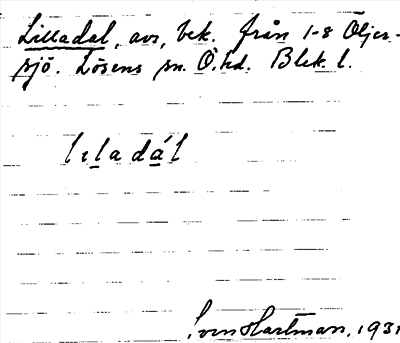 Lilladal, avs, bek. från 1-8 Öljer-
sjö. Lösens sn. Ö. hd. Blek. l.
lıladál
Sven Hartman, 1931